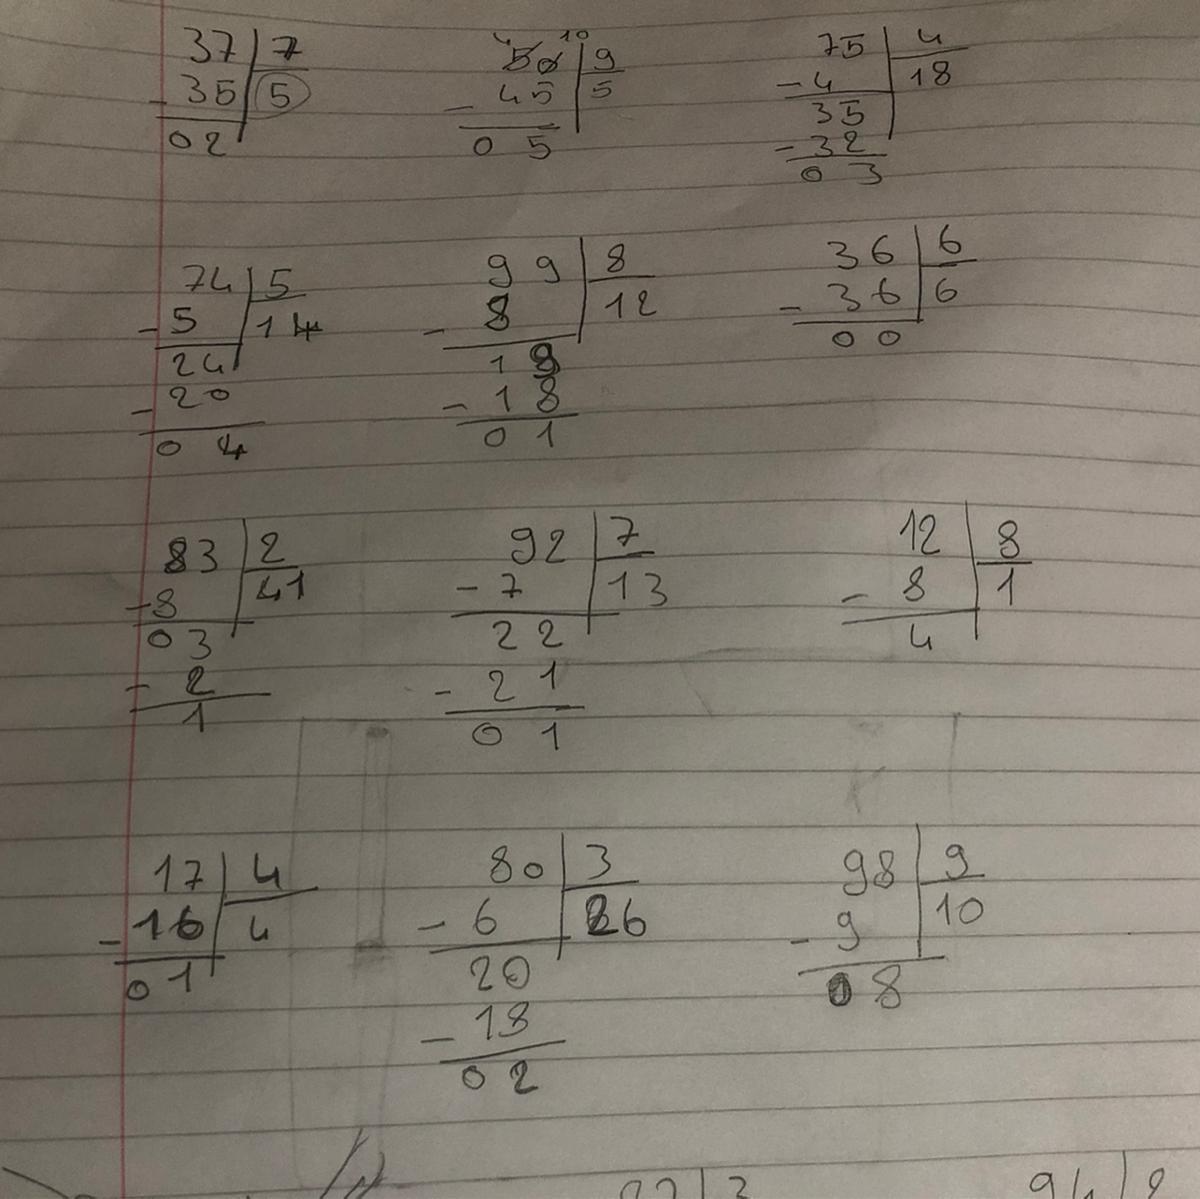 37 7
- 35 5
02
4 10
50 9
- 45 5
0 5
75 4
- 4 18
35
- 32
0 3
74 5
- 5 14
24
- 20
0 4
9 9 8
- 8 12
1 9
- 1 8
0 1
36 6
- 36 6
0 0
83 2
- 8 41
0 3
- 2
1
92 7
- 7 13
2 2
- 2 1
0 1
12 8
- 8 1
4
17 4
- 16 4
0 1
80 3
- 6 26
20
- 18
0 2
98 9
- 9 10
0 8